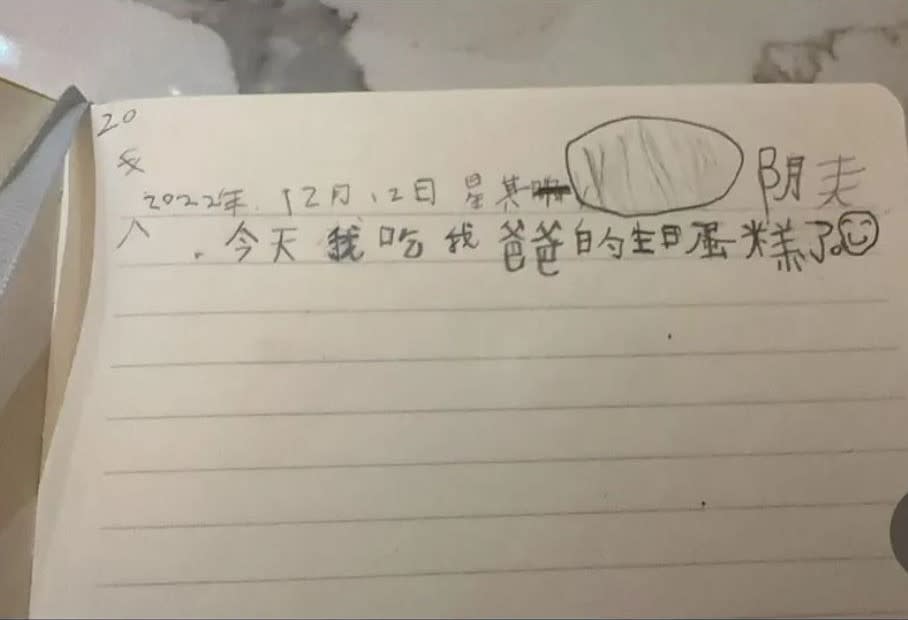 20
2022年.12月.12日 星其 阴天
.今天我吃我爸爸的生日蛋糕了